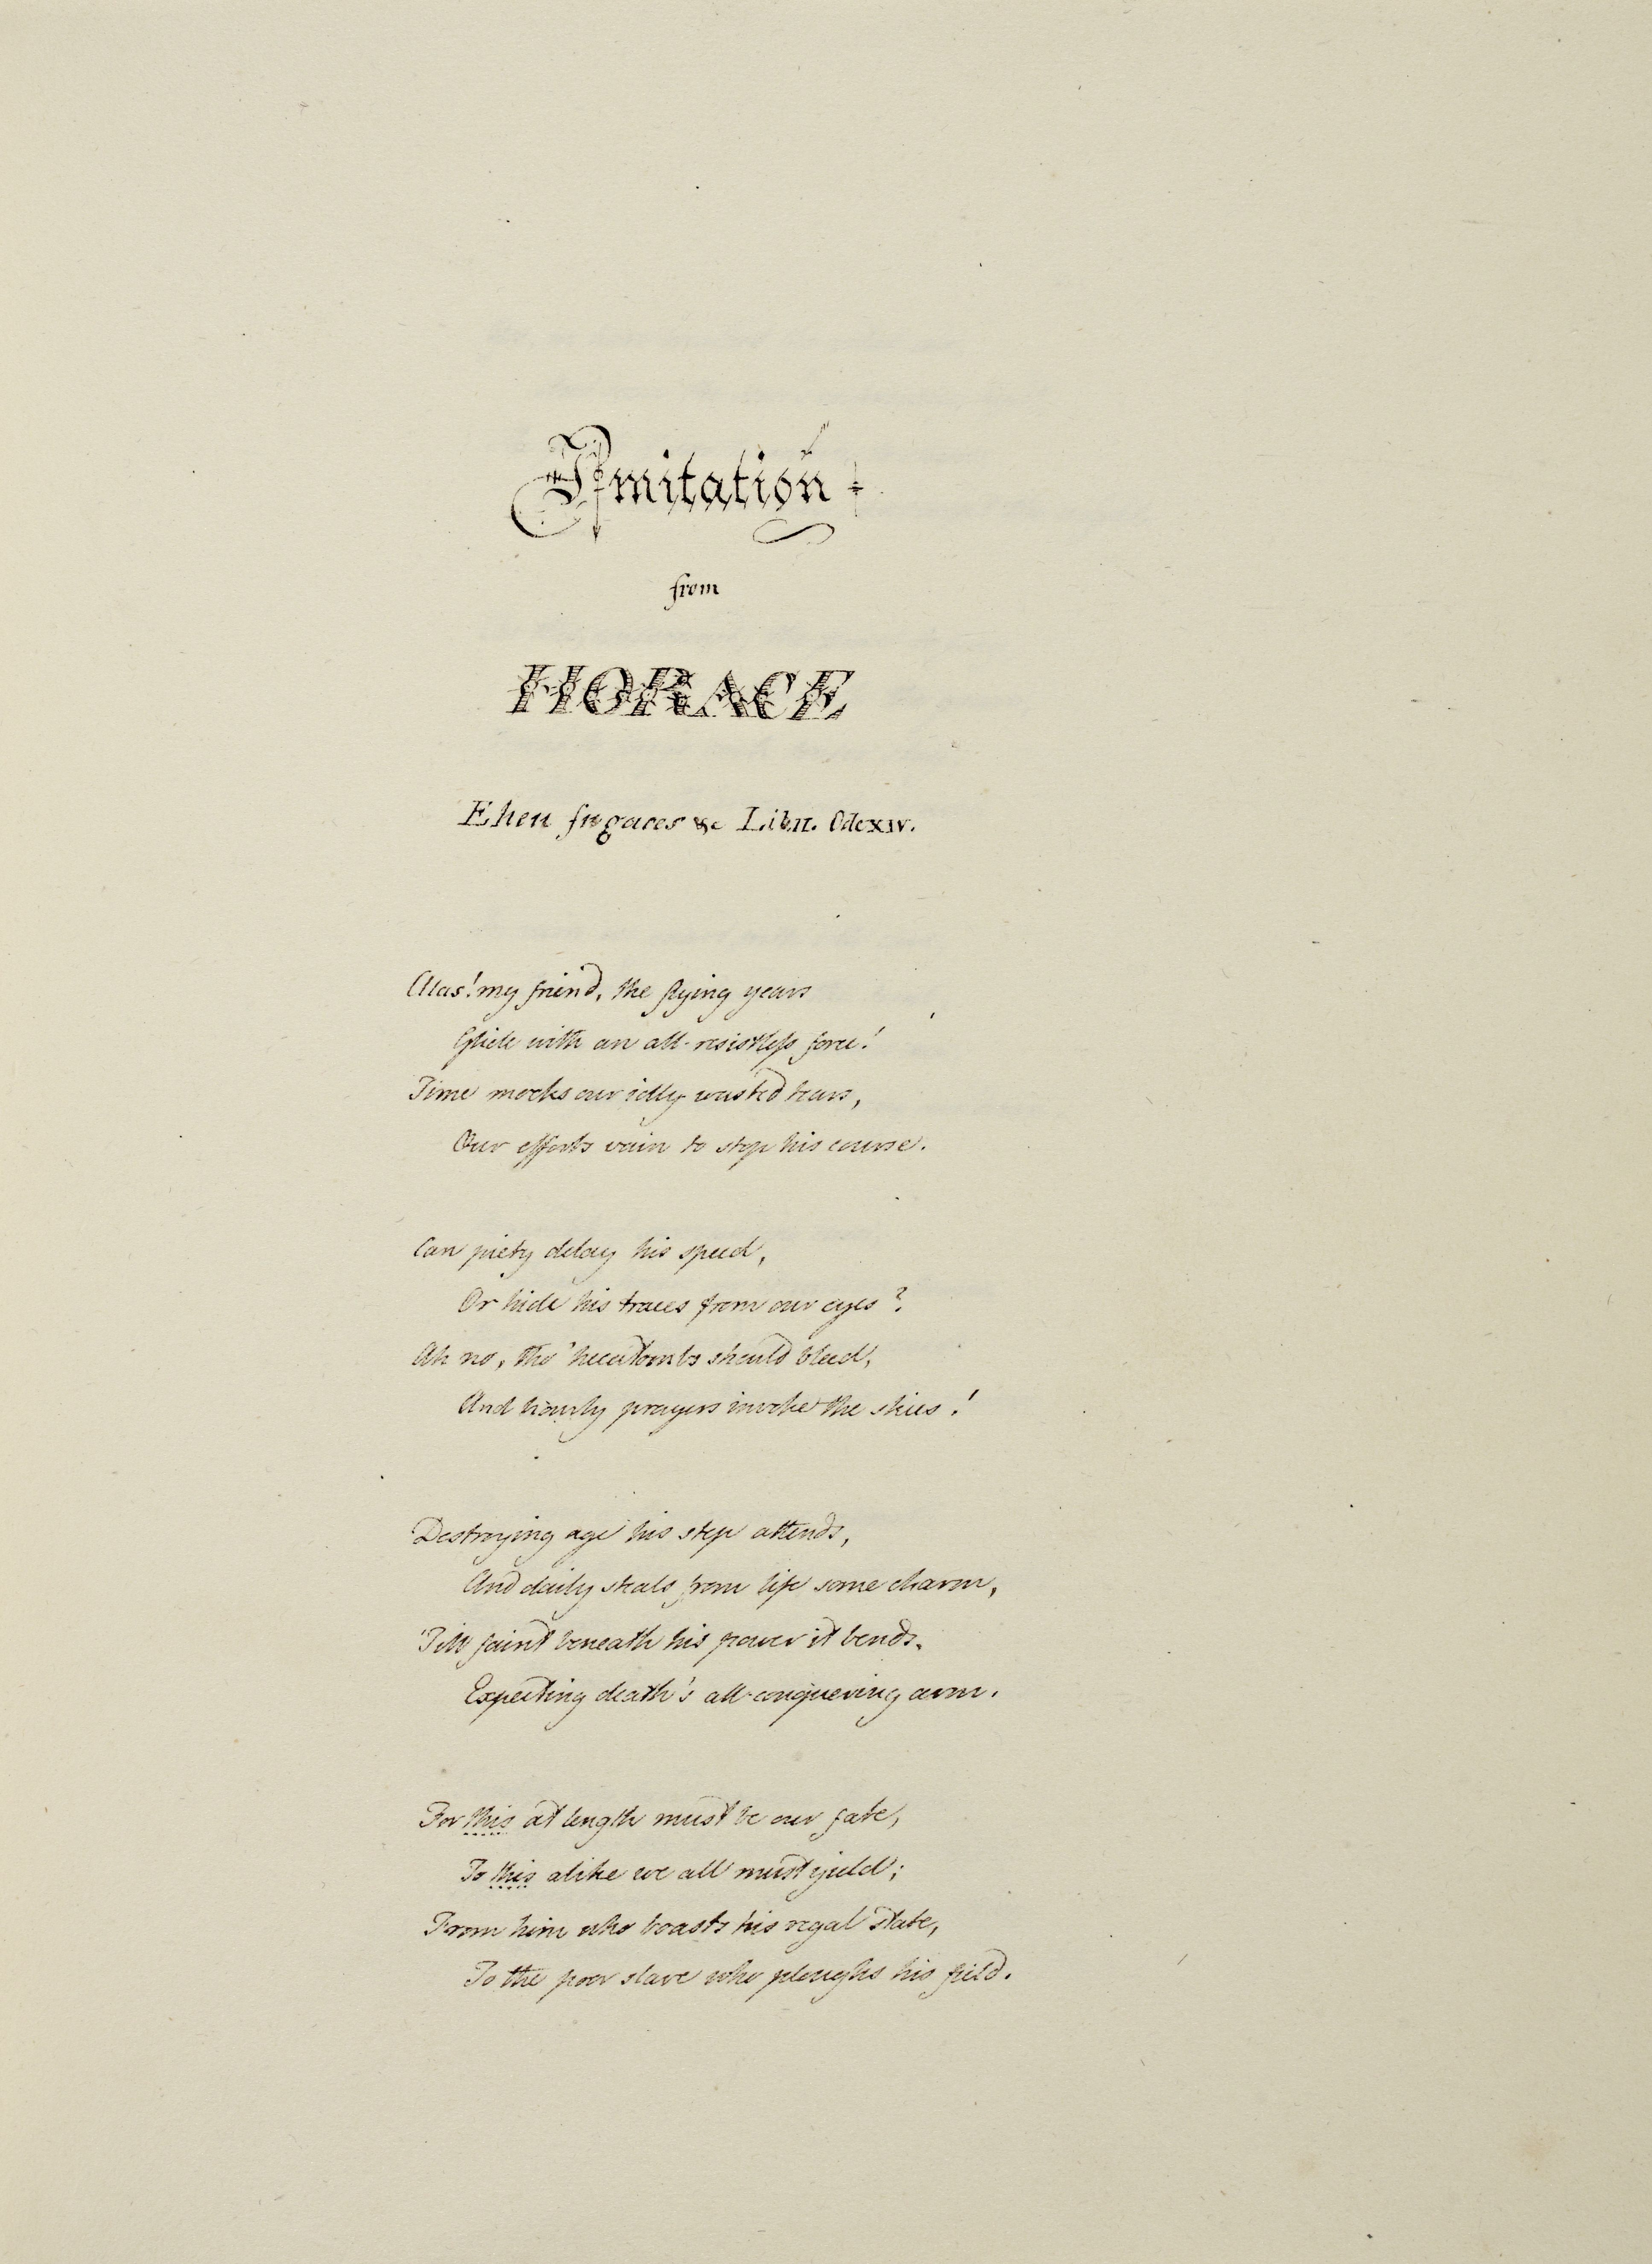 Imitation
from
HORACE
Eheu fugaces &c Lib. II. Ode XIV.
Alas! my friend, the flying years
Glide with an all-resistless force!
Time mocks our idly wasted tears,
Our efforts vain to stop his course.
Can piety delay his speed,
Or hide his traces from our eyes?
Ah no, tho' hecatombs should bleed,
And hourly prayers invoke the skies!
Destroying age his step attends,
And daily steals from life some charm,
'Till faint beneath his power it bends,
Expecting death's all-conquering arm.
For this at length must be our fate,
To this alike we all must yield;
From him who boasts his regal state,
To the poor slave who ploughs his field.